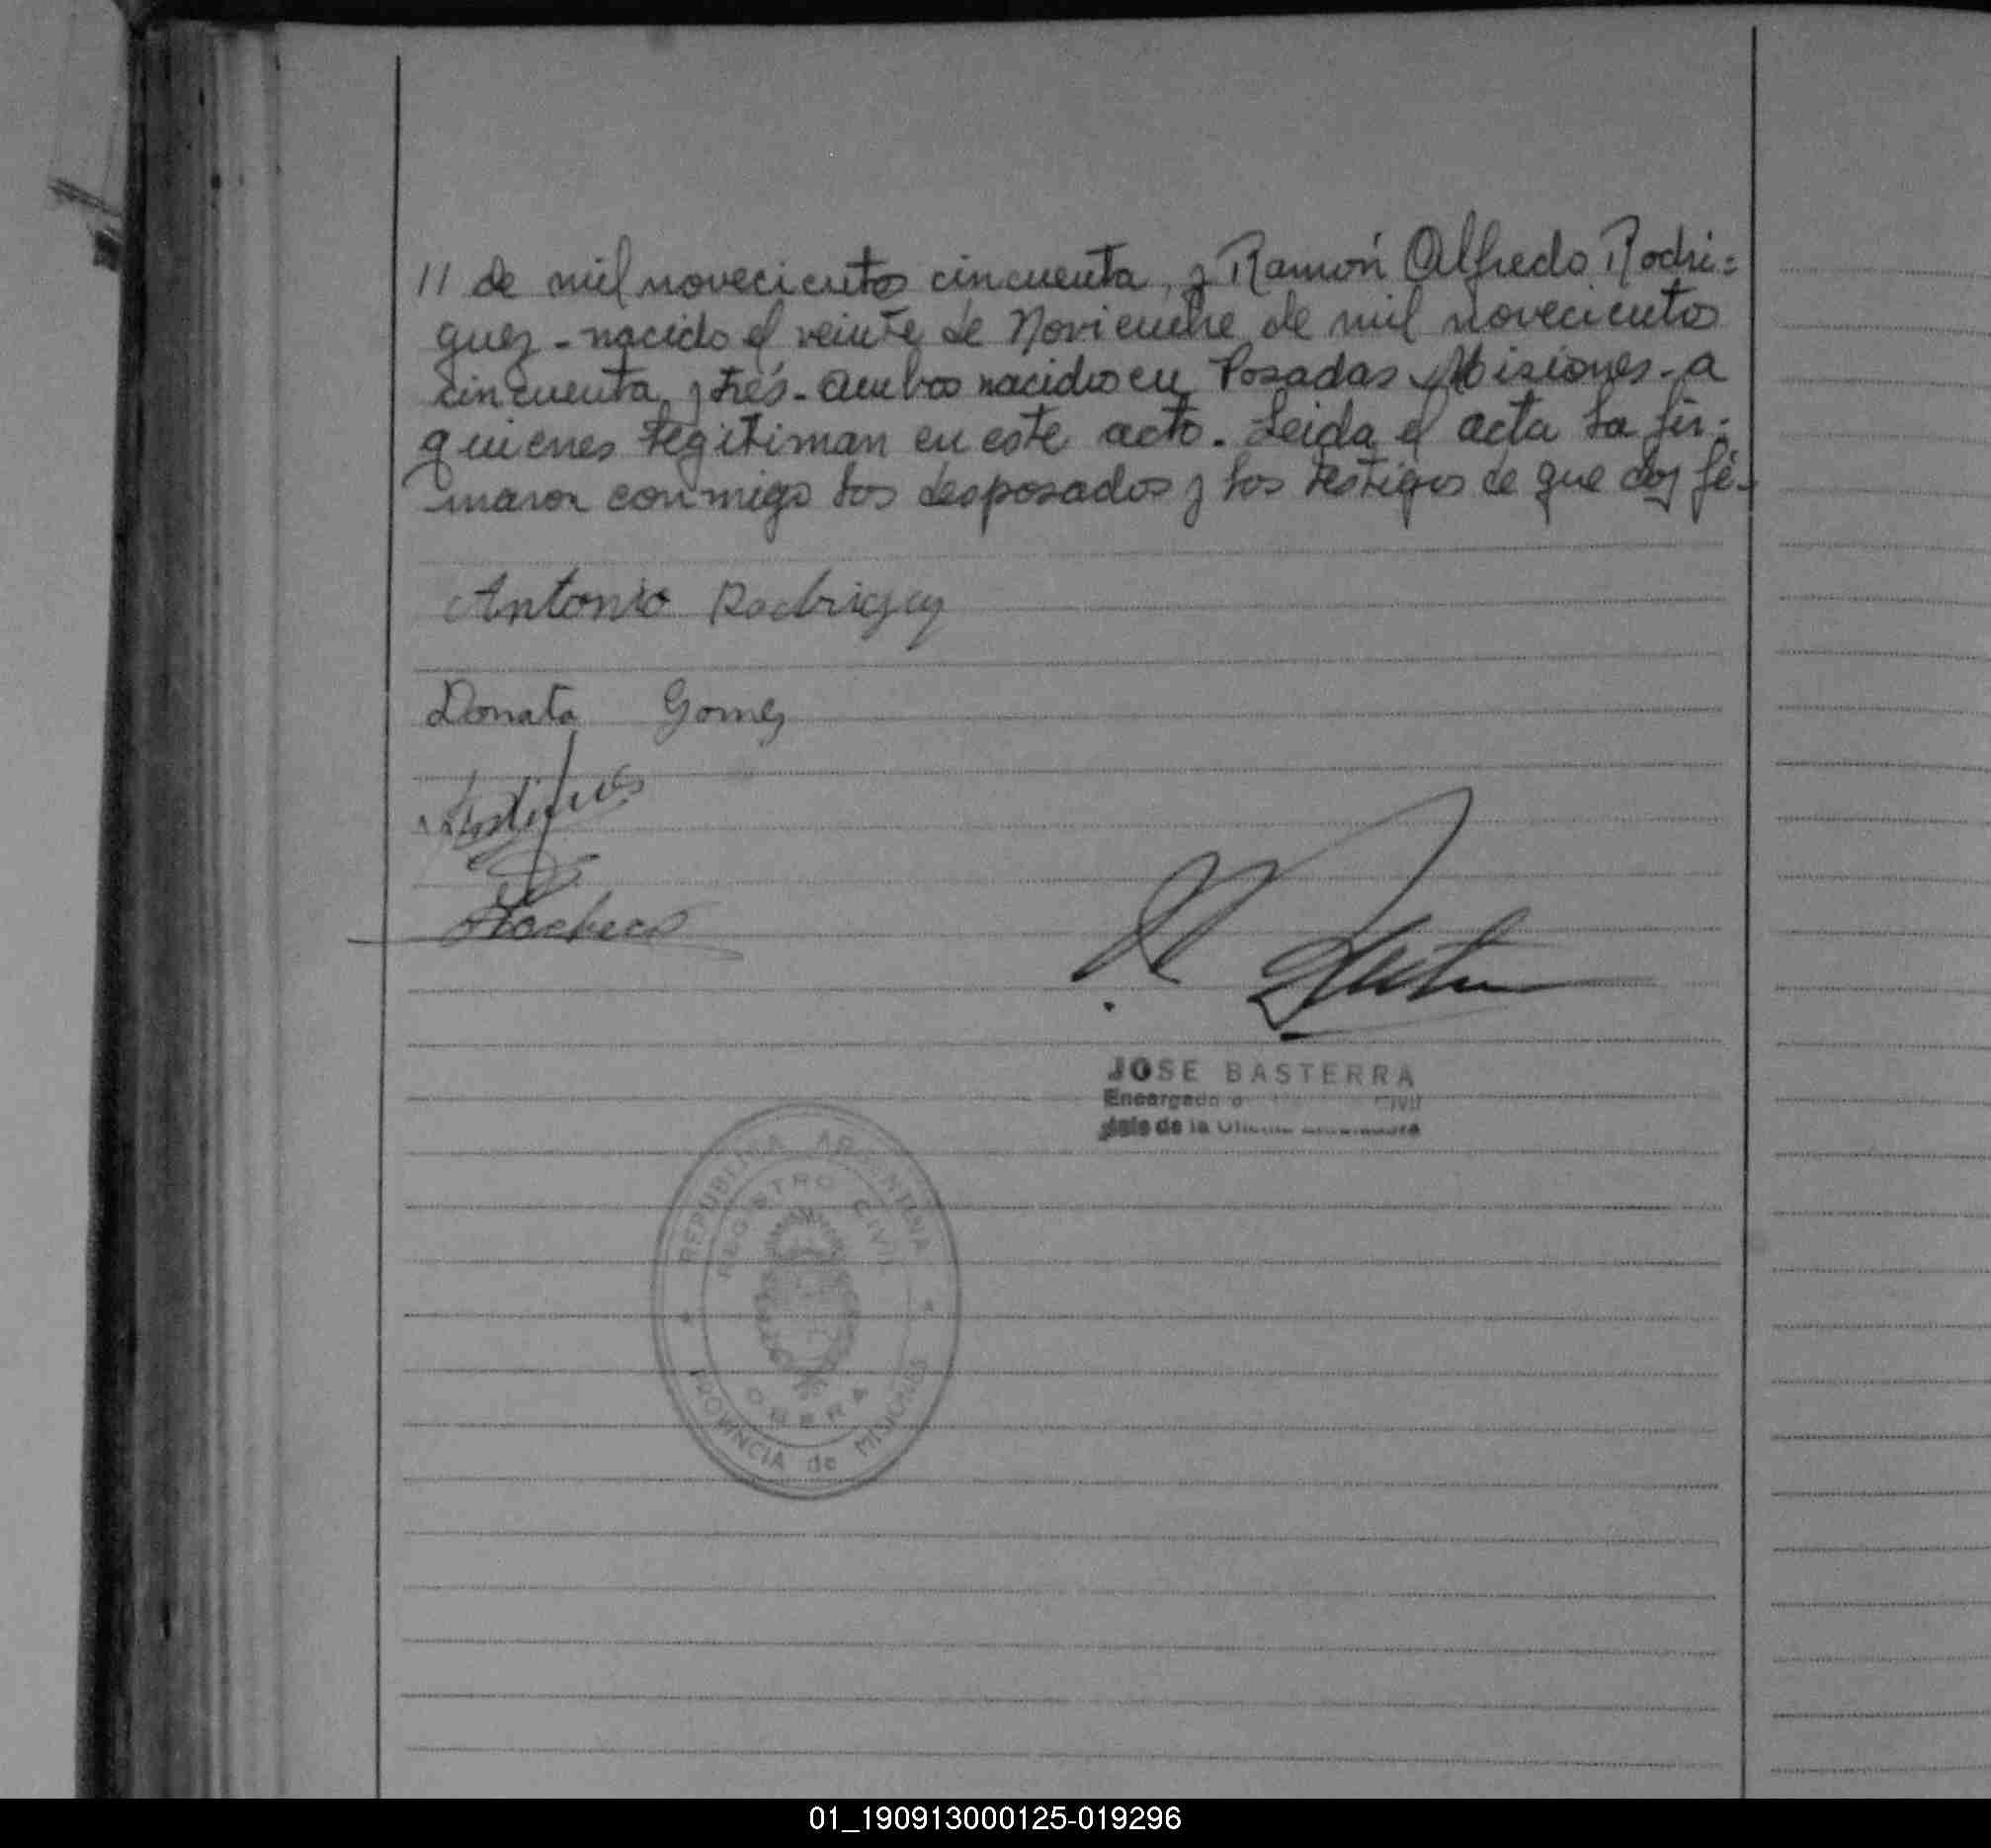 11 de mil novecientos cincuenta, y Ramón Alfredo Rodri=
guez - nacido el veinte de Noviembre de mil novecientos
cincuenta y trés - ambos nacidos en Posadas Misiones - a
quienes legitiman en este acto. Leida el acta la fir=
maron conmigo los desposados y los testigos de que doy fé -
Antonio Rodriguez
Donata Gomez
Testigos
Pacheco
JOSE BASTERRA
Encargado Civil
Jefe de la
REPUBLICA ARGENTINA
REGISTRO CIVIL
OBERA
PROVINCIA de MISIONES
01_190913000125-019296